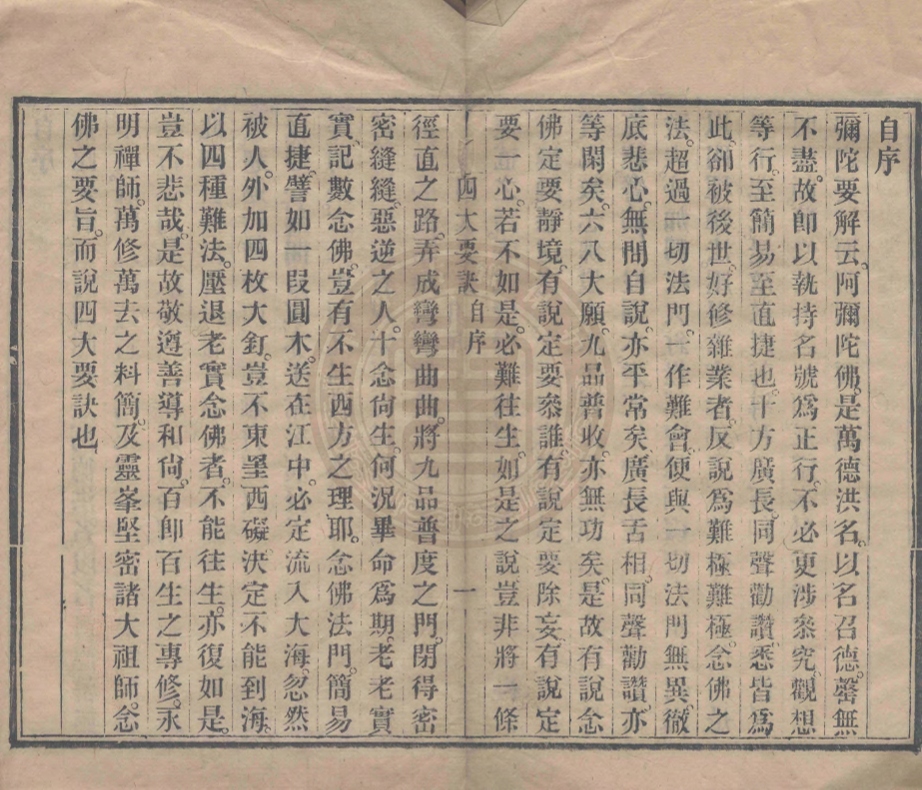 自序
彌陀要解云。阿彌陀佛。是萬德洪名。以名召德。罄無
不盡。故卽以執持名號爲正行。不必更涉叅究。觀想
等行。至簡易至直捷也。十方廣長。同聲勸讚。悉皆爲
此。卻被後世。好修雜業者。反說爲難極難極。念佛之
法。超過一切法門。一作難會。便與一切法門無異。徹
底悲心。無問自說。亦平常矣。廣長舌相。同聲勸讚。亦
等閑矣。六八大願。九品普收。亦無功矣。是故有說念
佛定要靜境。有說定要叅誰。有說定要除妄。有說定
要一心。若不如是。必難往生。如是之說。豈非將一條
四大要訣 自序 一
徑直之路。弄成彎彎曲曲。將九品普度之門。閉得密
密縫縫。惡逆之人。十念尙生。何況畢命爲期。老老實
實。記數念佛。豈有不生西方之理耶。念佛法門。簡易
直捷。譬如一段圓木。送在江中。必定流入大海。忽然
被人。外加四枚大釘。豈不東罣西礙。決定不能到海。
以四種難法。壓退老實念佛者。不能往生。亦復如是。
豈不悲哉。是故敬遵善導和尙。百卽百生之專修。永
明禪師。萬修萬去之料簡。及靈峯堅密諸大祖師。念
佛之要旨。而說四大要訣也